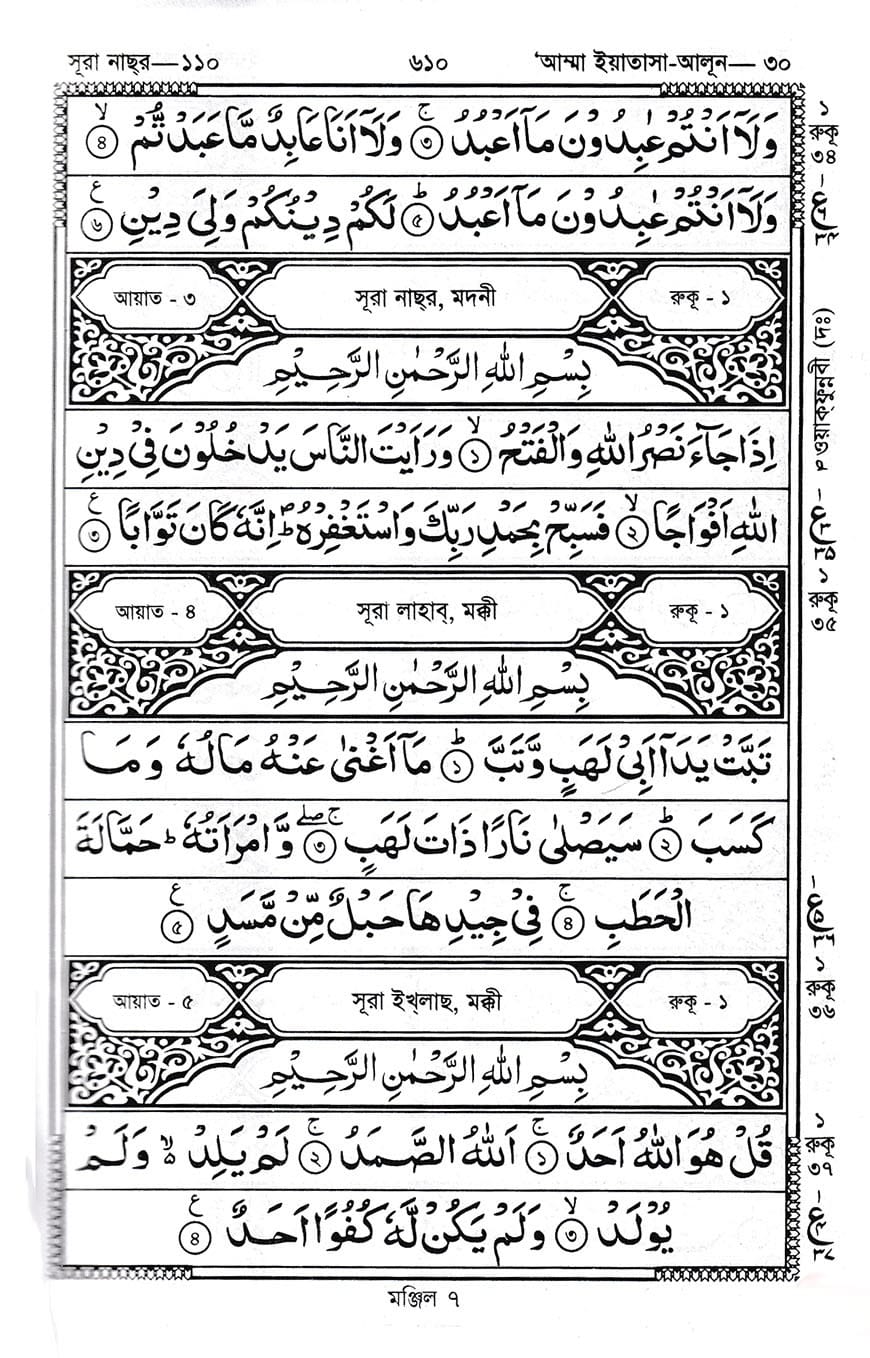 সূরা নাছ্‌র—১১০ ৬১০ ‘আম্মা ইয়াতাসা-আলূন— ৩০
وَلَاۤ اَنْتُمْ عٰبِدُوْنَ مَاۤ اَعْبُدُ ۚ ﴿৩﴾ وَلَاۤ اَنَا عَابِدٌ مَّا عَبَدْتُّمْ ۙ ﴿৪﴾
وَلَاۤ اَنْتُمْ عٰبِدُوْنَ مَاۤ اَعْبُدُ ؕ ﴿৫﴾ لَكُمْ دِيْنُكُمْ وَلِيَ دِيْنِ ﴿৬﴾ ع
১
রুকূ
৩৪
আয়াত - ৩ সূরা নাছ্‌র, মদনী রুকূ - ১
بِسْمِ اللهِ الرَّحْمٰنِ الرَّحِيْمِ
اِذَا جَآءَ نَصْرُ اللهِ وَالْفَتْحُ ۙ ﴿১﴾ وَرَاَيْتَ النَّاسَ يَدْخُلُوْنَ فِيْ دِيْنِ
اللهِ اَفْوَاجًا ۙ ﴿২﴾ فَسَبِّحْ بِحَمْدِ رَبِّكَ وَاسْتَغْفِرْهُ ؕ اِنَّهٗ كَانَ تَوَّابًا ﴿৩﴾ ع
ওয়াক্‌ফুন্নবী (দঃ)
১
রুকূ
৩৫
আয়াত - ৪ সূরা লাহাব্‌, মক্কী রুকূ - ১
بِسْمِ اللهِ الرَّحْمٰنِ الرَّحِيْمِ
تَبَّتْ يَدَاۤ اَبِيْ لَهَبٍ وَّتَبَّ ؕ ﴿১﴾ مَاۤ اَغْنٰى عَنْهُ مَالُهٗ وَمَا
كَسَبَ ؕ ﴿২﴾ سَيَصْلٰى نَارًا ذَاتَ لَهَبٍ ۚۖ ﴿৩﴾ وَّامْرَاَتُهٗ ؕ حَمَّالَةَ
الْحَطَبِ ۚ ﴿৪﴾ فِيْ جِيْدِهَا حَبْلٌ مِّنْ مَّسَدٍ ﴿৫﴾ ع
১
রুকূ
৩৬
আয়াত - ৫ সূরা ইখ্‌লাছ, মক্কী রুকূ - ১
بِسْمِ اللهِ الرَّحْمٰنِ الرَّحِيْمِ
قُلْ هُوَ اللهُ اَحَدٌ ۚ ﴿১﴾ اَللهُ الصَّمَدُ ۚ ﴿২﴾ لَمْ يَلِدْ ۙ۬ وَلَمْ
يُوْلَدْ ۙ ﴿৩﴾ وَلَمْ يَكُنْ لَّهٗ كُفُوًا اَحَدٌ ﴿৪﴾ ع
১
রুকূ
৩৭
মঞ্জিল ৭